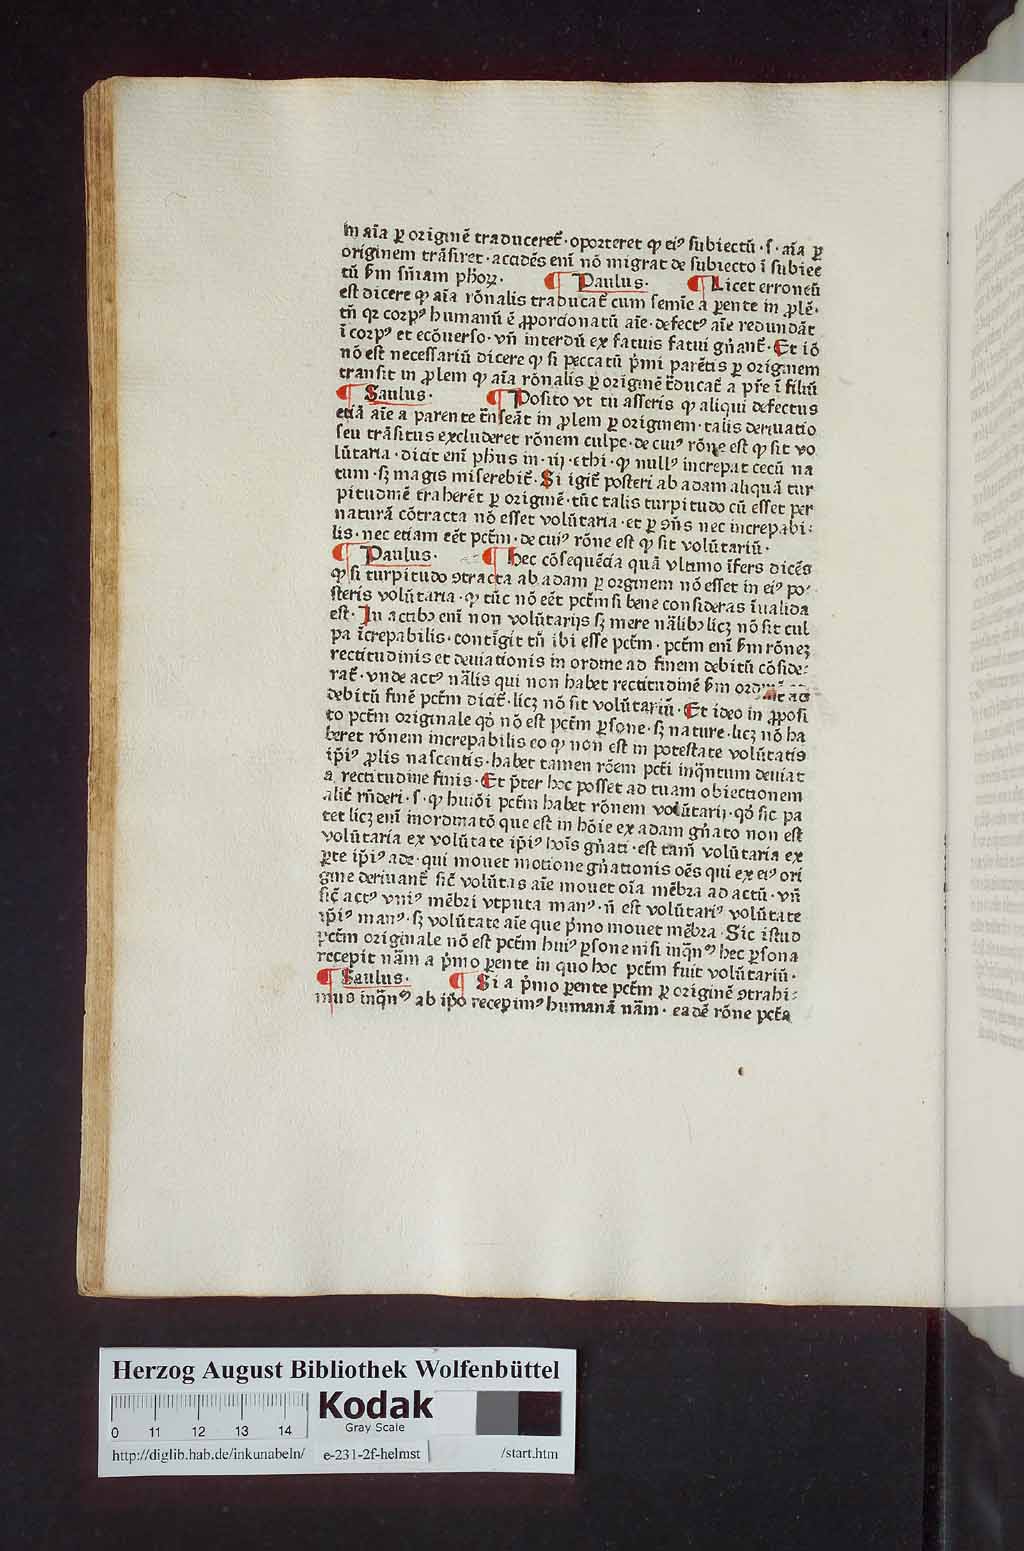 in aīa ꝑ originē traduceret̄· oporteret ꝙ eiꝰ subiectū· s· aīa ꝑ
originem trāsiret· accidēs enī nō migrat de subiecto ī subiec
tū ẜm sn̄iam phorꝝ· ¶ Paulus· ¶ Licet erroneū
est dicere ꝙ aīa rōnalis traducat̄ cum semīe a ꝑente in ꝓlē·
tn̄ qꝛ corpꝰ humanū ē ꝓporcionatū aīe· defectꝰ aīe redundāt
ī corpꝰ et ecōuerso· vn̄ interdū ex fatuis fatui gn̄ant̄· Et iō
nō est necessariū dicere ꝙ si peccatū p̄mi parētis ꝑ originem
transit in ꝓlem ꝙ aīa rōnalis ꝑ originē t̄ducat̄ a pr̄e ī filiū
¶ Saulus· ¶ Posito vt tu asseris ꝙ aliqui defectus
etiā aīe a parente t̄nseāt in ꝓlem ꝑ originem· talis deriuatio
seu trāsitus excluderet rōnem culpe· de cuiꝰ rōne est ꝙ sit vo
lūtaria· dicit enī phus in· iij· ethi· ꝙ nullꝰ increpat cecū na
tum· sꝫ magis miserebit̄· Si igit̄ posteri ab adam aliquā tur
pitudinē traherēt ꝑ originē· tūc talis turpitudo cū esset per
naturā cōtracta nō esset volūtaria· et ꝑ ꝯn̄s nec increpabi:
lis· nec etiam eēt pctm̄· de cuiꝰ rōne est ꝙ sit volūtariū·
¶ Paulus· ¶ Hec cōsequēcia quā vltimo īfers dicēs
ꝙ si turpitudo ꝯtracta ab adam ꝑ orginem nō esset in eiꝰ po·
steris volūtaria· ꝙ tūc nō eēt pctm̄ si bene consideras īualida
est· In actibꝰ enī non volūtarijs sꝫ mere nālibꝰ licꝫ nō sit cul
pa īcrepabilis· contīgit tn̄ ibi esse pctm̄· pctm̄ enī ẜm rōneꝫ
rectitudinis et deuiationis in ordine ad finem debitū cōside:
rat̄· vnde actꝰ nālis qui non habet rectitudinē ẜm ordinē ad
debitū finē pctm̄ dicit̄· licꝫ nō sit volūtariū· Et ideo in ꝓposi
to pctm̄ originale qd̓ nō est pctm̄ ꝑsone· sꝫ nature· licꝫ nō ha
beret rōnem increpabilis eo ꝙ non est in potestate volūtatis
ip̄iꝰ ꝓlis nascentis· habet tamen rōem pcti inqn̄tum deuiat
a rectitudine finis· Et p̄ter hoc posset ad tuam obiectionem
alit̄ rn̄deri· s· ꝙ huiōi pctm̄ habet rōnem volūtarij· qd̓ sic pa
tet licꝫ enī inordinatō que est in hōie ex adam gn̄ato non est
volūtaria ex volūtate ip̄iꝰ hoīs gn̄ati· est tam̄ volūtaria ex
ꝑte ip̄iꝰ ade· qui mouet motione gn̄ationis oēs qui ex eiꝰ ori
gine deriuant̄ sic̄ volūtas aīe mouet oīa mēbra ad actū· vn̄
sic̄ actꝰ vniꝰ mēbri vtputa manꝰ· n̄ est volūtariꝰ volūtate
ip̄iꝰ manꝰ· sꝫ volūtate aīe que p̄mo mouet mēbra· Sic istud
pctm̄ originale nō est pctm̄ huiꝰ ꝑsone nisi inqn̄ꝰ hec ꝑsona
recepit nām a p̄mo ꝑente in quo hoc pctm̄ fuit volūtariū·
¶ Saulus· ¶ Si a p̄mo ꝑente pctm̄ ꝑ originē ꝯtrahi:
mus inqn̄ꝰ ab ip̄o recepimꝰ humanā nām· eadē rōne pctā
Herzog August Bibliothek Wolfenbüttel
0 11 12 13 14
Kodak
Gray Scale
http://diglib.hab.de/inkunabeln/ e-231-2f-helmst /start.htm